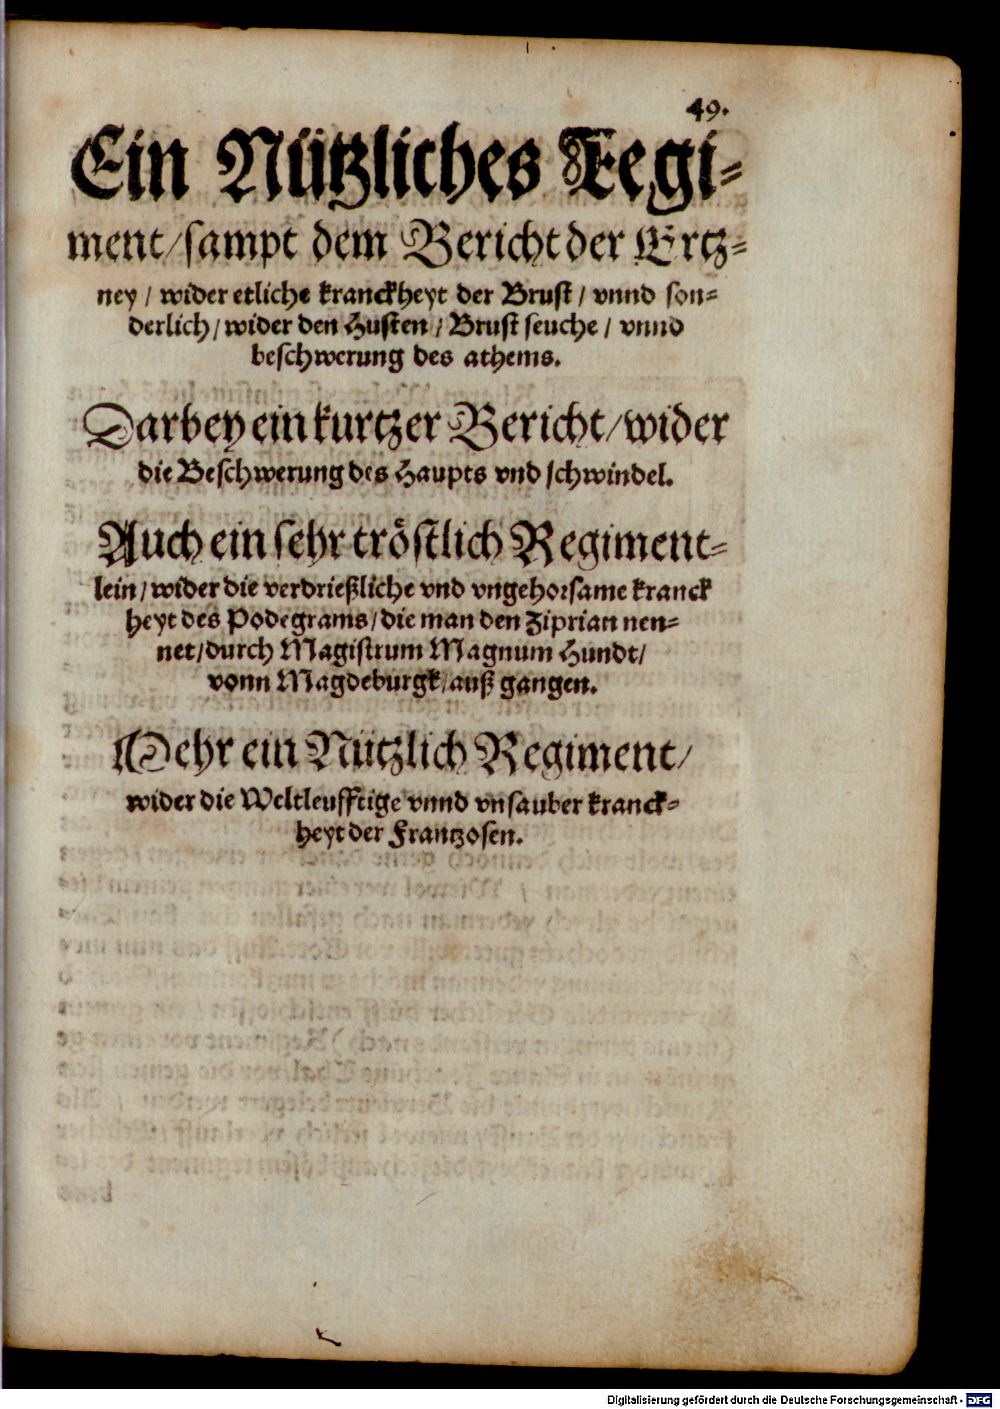 49.
Ein Nützliches Regi-
ment/sampt dem Bericht der Ertz-
ney / wider etliche kranckheyt der Brust / vnnd son-
derlich/wider den Husten / Brust seuche / vnnd
beschwerung des athems.
Darbey ein kurtzer Bericht/wider
die Beschwerung des Haupts vnd schwindel.
Auch ein sehr tröstlich Regiment-
lein/wider die verdrießliche vnd vngehorsame kranck
heyt des Podegrams/die man den Ziprian nen-
net/durch Magistrum Magnum Hundt/
vonn Magdeburgk/auß gangen.
Mehr ein Nützlich Regiment/
wider die Weltleufftige vnnd vnsauber kranck-
heyt der Frantzosen.
Digitalisierung gefördert durch die Deutsche Forschungsgemeinschaft - DFG